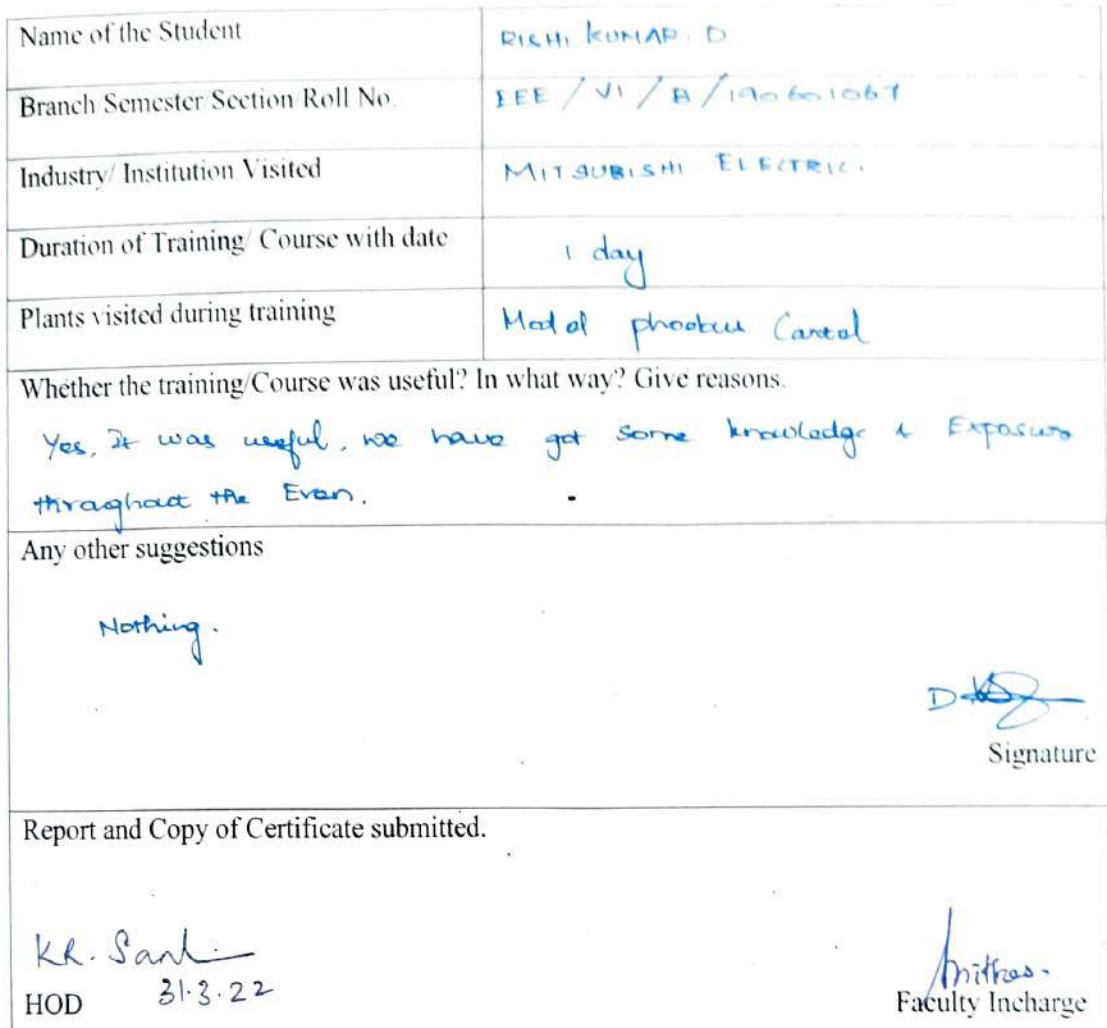 Name of the Student RISHI KUMAR. D
Branch/Semester/Section/Roll No. EEE / VI / B / 190601067
Industry/ Institution Visited MITSUBISHI ELECTRIC.
Duration of Training/ Course with date 1 day
Plants visited during training Model
Whether the training/Course was useful? In what way? Give reasons.
Yes, It was useful, we have got some knowledge & Exposure
throughout the Even.
Any other suggestions
Nothing.
D
Signature
Report and Copy of Certificate submitted.
KR. 
31.3.22
HOD Faculty Incharge